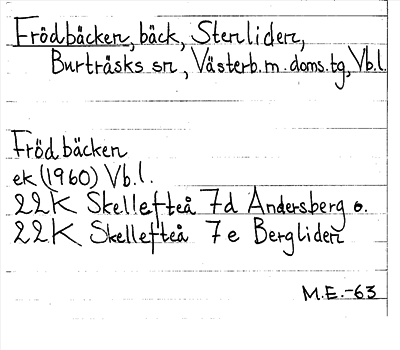 Frödbäcken, bäck, Stenliden,
Burträsks sn, Västerb. m. doms. tg, Vb.l.
Frödbäcken
ek (1960) Vb.l.
22K Skellefteå 7d Andersberg o.
22K Skellefteå 7e Bergliden
M.E.-63